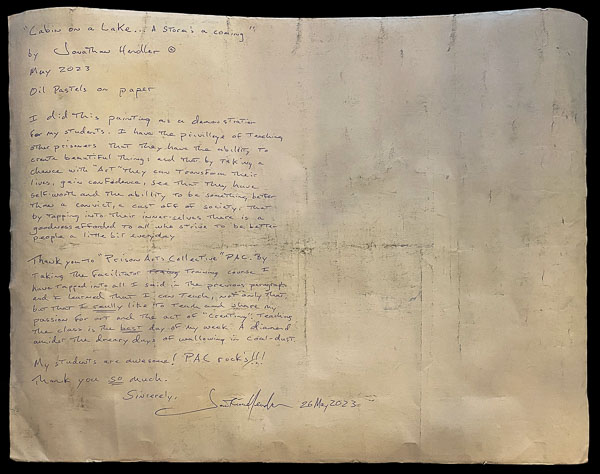 "Cabin on a Lake... A Storm's a coming"
by Jonathan Hendler ©
May 2023
Oil Pastels on paper
I did this painting as a demonstration
for my students. I have the privillege of Teaching
other prisoners that they have the ability to
create beautiful things and that by Taking a
chance with "Art" they can Transform their
lives, gain confidence, see that they have
self-worth and the ability to be something better
than a convict, a cast off of society, that
by tapping into their inner-selves there is a
goodness afforded to all who strive to be better
people a little bit everyday.
Thank you to "Prison Arts Collective" PAC. By
Taking the facilitator Training course I
have tapped into all I said in the previous paragraph
and I learned that I can Teach, not only that
but that I really like to Teach and share my
passion for art and the act of "Creating". Teaching
the class is the best day of my week. A diamond
amidst the dreary days of wallowing in coal-dust.
My students are awesome! PAC rocks!!!
Thank you so much.
Sincerely,
26 May, 2023